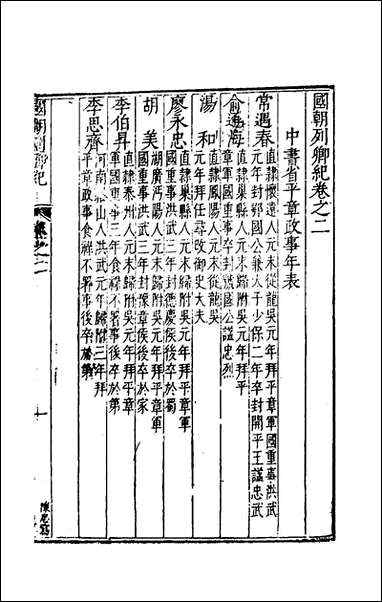 國朝列卿紀卷之二
中書省平章政事年表
常遇春
直隸懷遠人元末從龍吳元年拜平章軍國重事洪武
元年封鄂國公兼太子少保二年卒封開平王諡忠武
俞通海
直隸巢縣人元末歸附吳元年拜平
章軍國重事卒封虢國公諡忠烈
湯和
直隸鳳陽人元末從龍吳
元年拜任尋改御史大夫
廖永忠
直隸巢縣人元末歸附吳元年拜平章軍
國重事洪武三年封德慶侯後卒於蜀
胡美
湖廣沔陽人元末歸附吳元年拜平章軍
國重事洪武三年封豫章侯後卒於家
李伯昇
直隸泰州人元末歸附吳元年拜平章
軍國重事三年食祿不署事後卒於第
李思齊
河南羅山人洪武元年歸附三年拜
平章政事食祿不署事後卒於第
國朝列卿紀